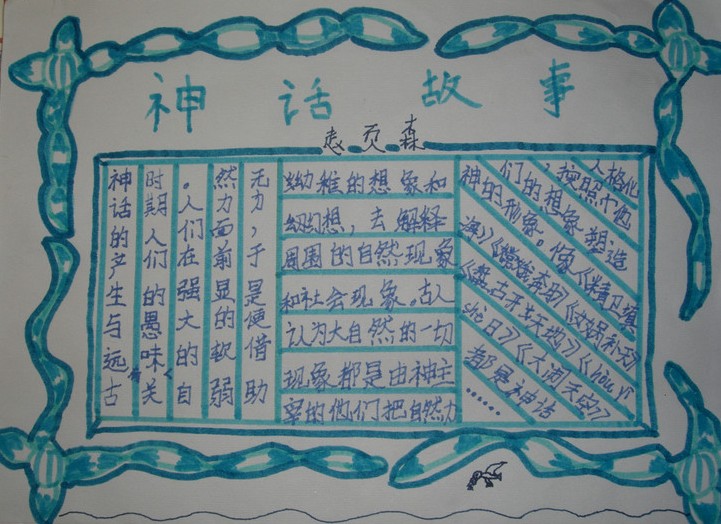 神话故事
森
神话的产生与远古
时期人们的愚昧有关
。人们在强大的自
然力面前显的软弱
无力，于是便借助
幼稚的想象和
幻想，去解释
周围的自然现象
和社会现象。古人
认为大自然的一切
现象都是由神主
宰的他们把自然力
人格化
，按照个他
们的想象塑造
神的形象。像《精卫填
海》《嫦娥奔月》《女娲补天》
《盘古开天地》《hou yi
she日》《大闹天宫》
都是神话
……